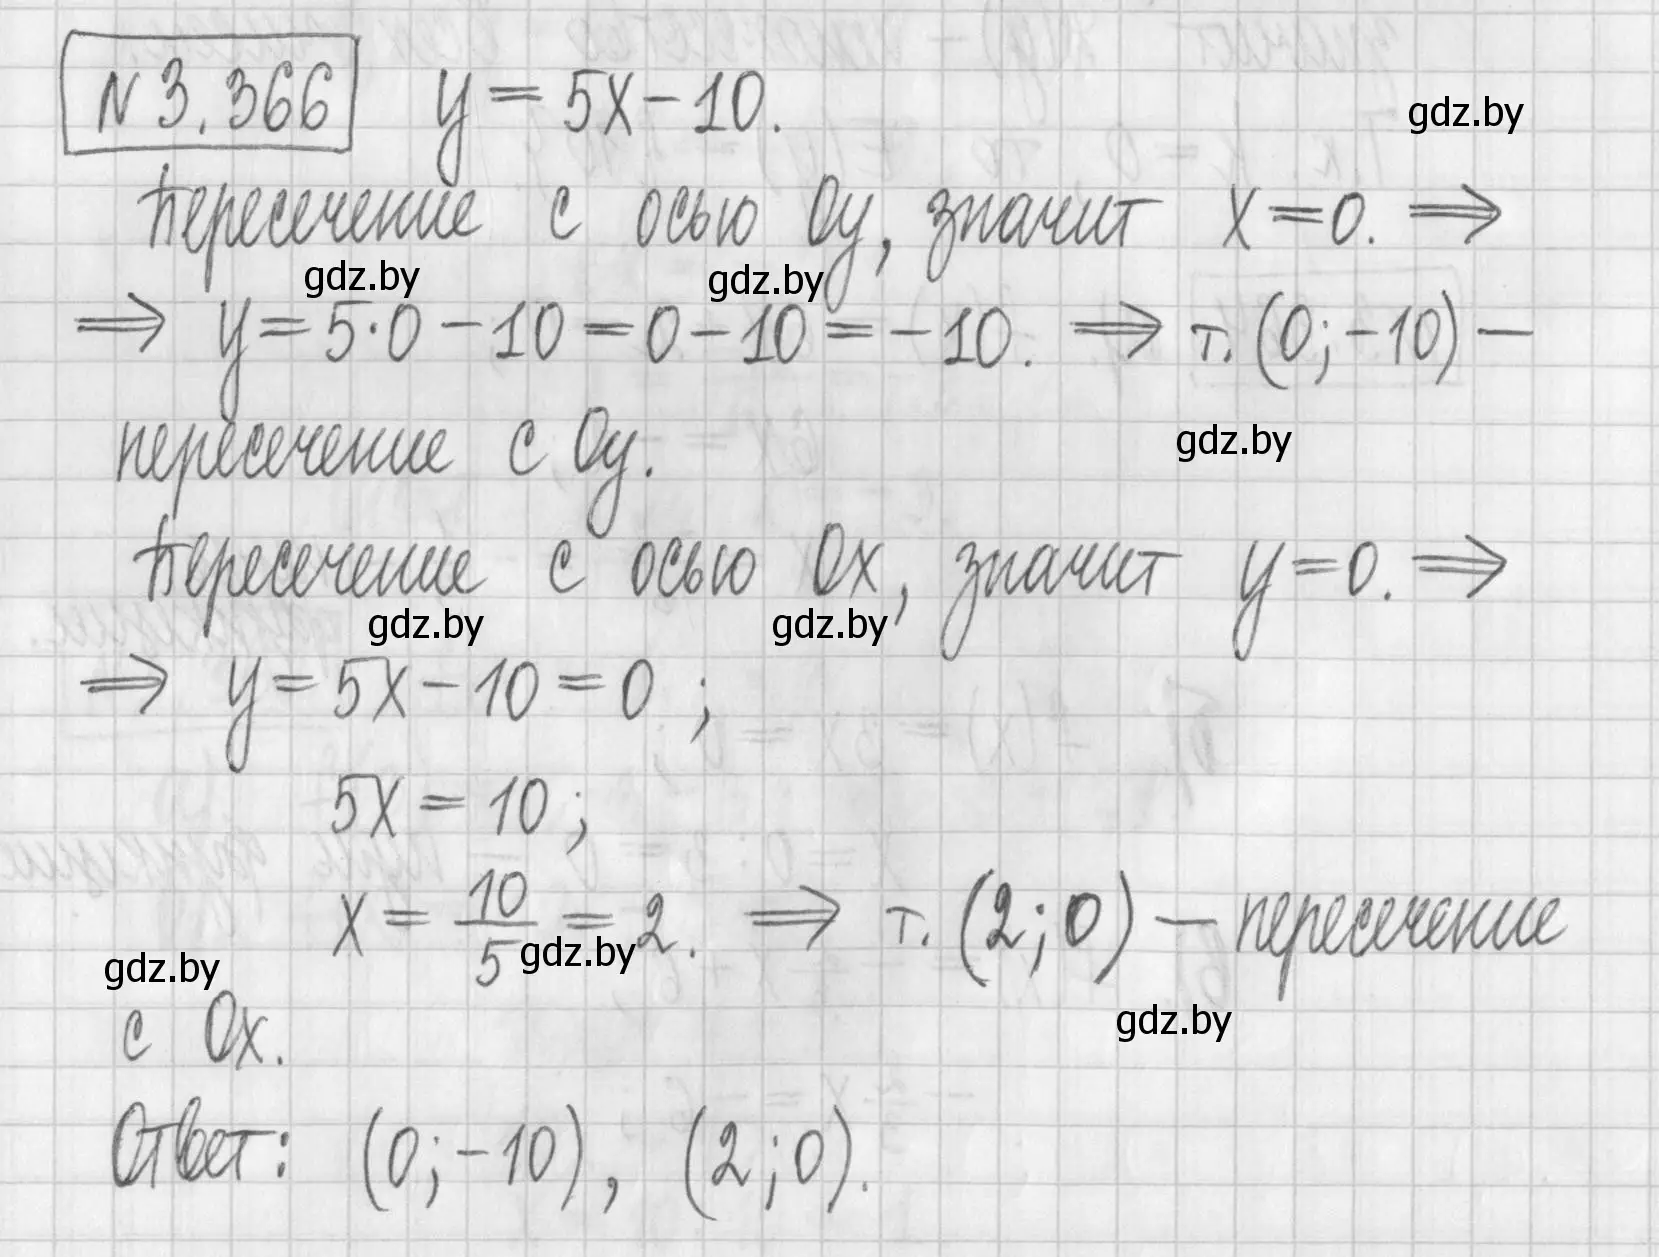 №3.366 y = 5x - 10.
gdz.by
Пересечение с осью Oy, значит x = 0. ⇒
gdz.by gdz.by
⇒ y = 5·0 - 10 = 0 - 10 = -10. ⇒ т. (0; -10) —
пересечение с Oy.
gdz.by
Пересечение с осью Ox, значит y = 0. ⇒
gdz.by gdz.by
⇒ y = 5x - 10 = 0 ;
5x = 10 ;
x = 10/5 = 2. ⇒ т. (2; 0) — пересечение
gdz.by gdz.by
с Ox.
gdz.by
Ответ: (0; -10), (2; 0).